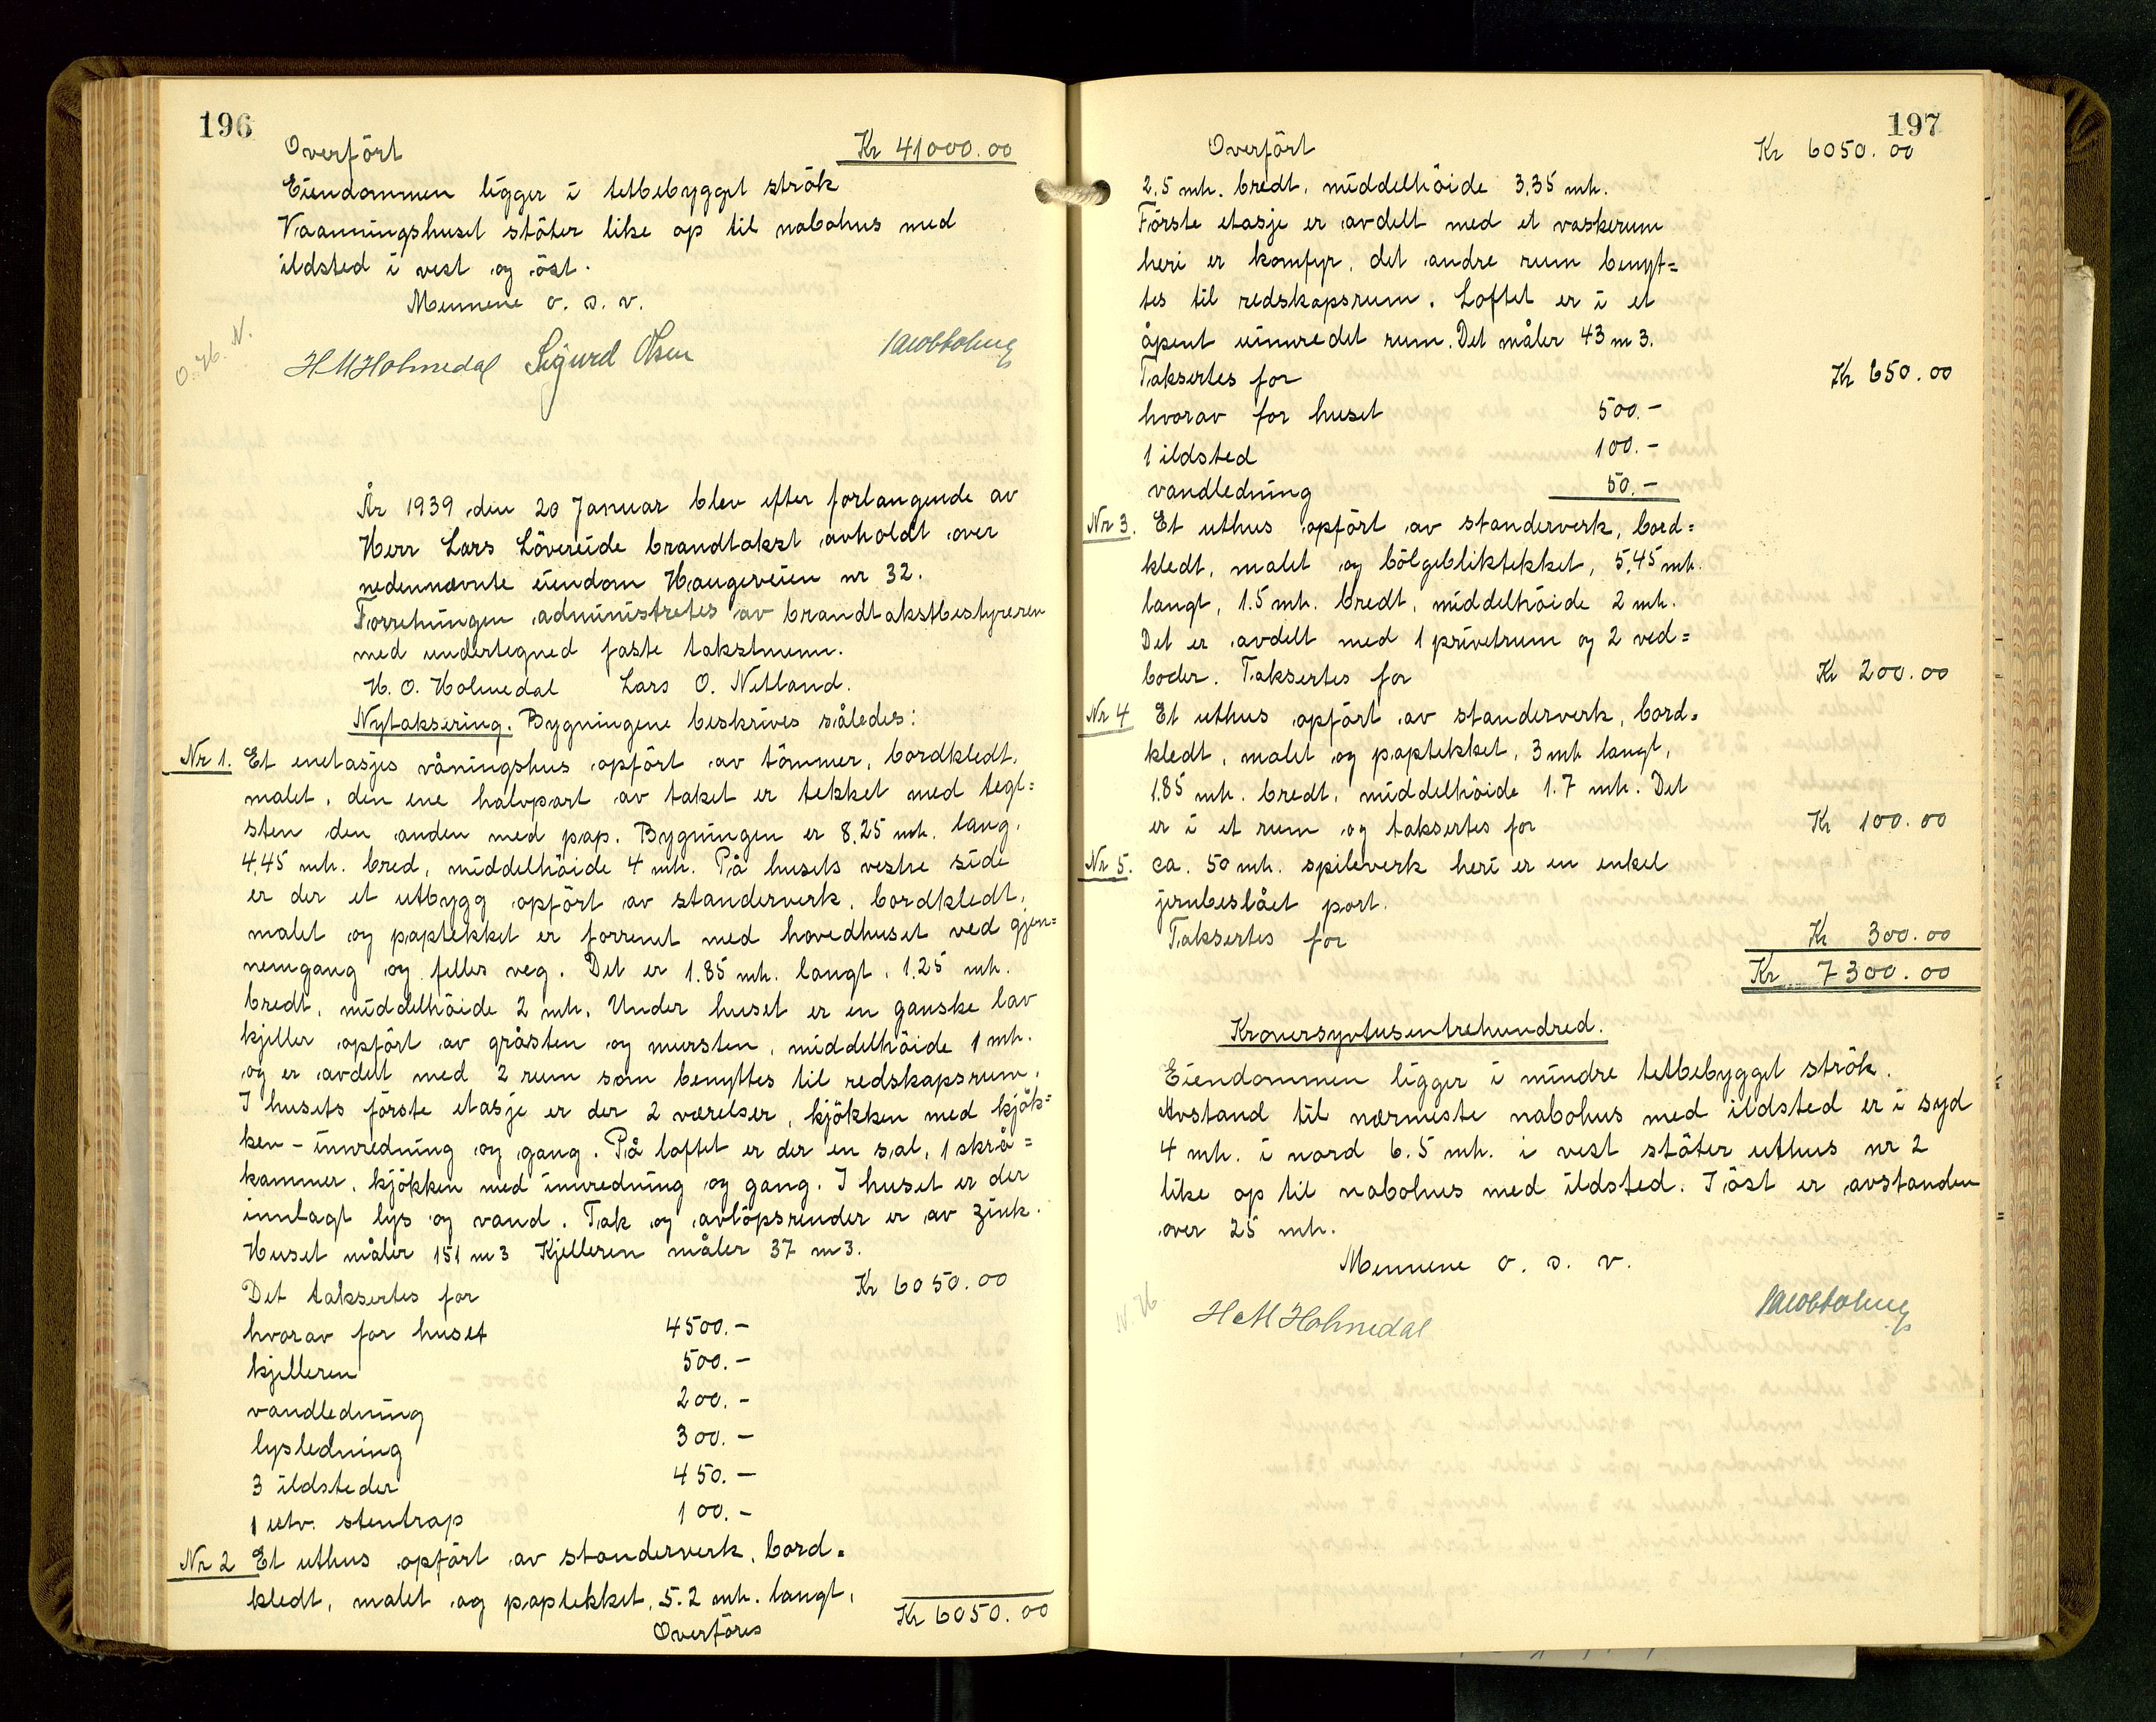 196
Overført Kr 41000.00
Eiendommen ligger i tetbebygget strøk
Vaaningshuset støter like op til nabohus med
ildsted i vest og øst.
Mennene o. s. v.
O. H. N.
H M Holmedal Sigurd Olsen
År 1939 den 20 Januar blev efter forlangende av
Herr Lars Lövereide brandtakst avholdt over
nedennævnte eiendom Haugeveien nr 32.
Forretningen administretes av brandtakstbestyreren
med undertegned faste takstmenn.
H. O. Holmedal Lars O. Netland.
Nytaksering. Bygningene beskrives således:
Nr 1. Et enetasjes våningshus opført av tømmer, bordkledt,
malet, den ene halvpart av taket er tekket med tegl=
sten den anden med pap. Bygningen er 8,25 mtr. lang,
4,45 mtr. bred, middelhöide 4 mtr. På husets vestre side
er der et utbygg opført av standerverk, bordkledt,
malet og paptekket er forrenet med hovedhuset ved gjen=
nemgang og felles veg. Det er 1.85 mtr. langt, 1.25 mtr.
bredt, middelhöide 2 mtr. Under huset er en ganske lav
kjeller opført av gråsten og mursten, middelhöide 1 mtr.
og er avdelt med 2 rum som benyttes til redskapsrum.
I husets første etasje er der 2 værelser, kjøkken med kjøk=
ken-innredning og gang. På loftet er der en sal, 1 skrå=
kammer, kjøkken med innredning og gang. I huset er der
innlagt lys og vand. Tak og avløpsrender er av zink.
Huset måler 151 m3 Kjelleren måler 37 m3.
Det taksertes for Kr 6050.00
hvorav for huset 4500.-
kjelleren 500.-
vandledning 200.-
lysledning 300.-
3 ildsteder 450.-
1 utv. stentrap 100.-
Nr 2 Et uthus opført av standerverk, bord=
kledt, malet og paptekket, 5.2 mtr. langt,
Overføres Kr 6050.00
197
Overført Kr 6050.00
2,5 mtr. bredt, middelhöide 3,35 mtr.
Første etasje er avdelt med et vaskerum
heri er komfyr, det andre rum benyt=
tes til redskapsrum. Loftet er i et
åpent uinnredet rum. Det måler 43 m3.
Taksertes for Kr 650.00
hvorav for huset 500.-
1 ildsted 100.-
vandledning 50.-
Nr 3. Et uthus opført av standerverk, bord=
kledt, malet og bølgebliktekket, 5,45 mtr.
langt, 1.5 mtr. bredt, middelhöide 2 mtr.
Det er avdelt med 1 privetrum og 2 ved=
boder. Taksertes for Kr 200.00
Nr 4 Et uthus opført av standerverk, bord=
kledt, malet og paptekket, 3 mtr langt,
1.85 mtr. bredt, middelhöide 1.7 mtr. Det
er i et rum og taksertes for Kr 100.00
Nr 5. ca. 50 mtr. spileverk heri er en enkel
jernbeslået port.
Taksertes for Kr 300.00
Kr 7300.00
Kronersyvtusentrehundred.
Eiendommen ligger i mindre tetbebygget strøk.
Avstand til nærmeste nabohus med ildsted er i syd
4 mtr. i nord 6.5 mtr. i vest støter uthus nr 2
like op til nabohus med ildsted. I øst er avstanden
over 25 mtr.
Mennene o. s. v.
N. H
H M Holmedal